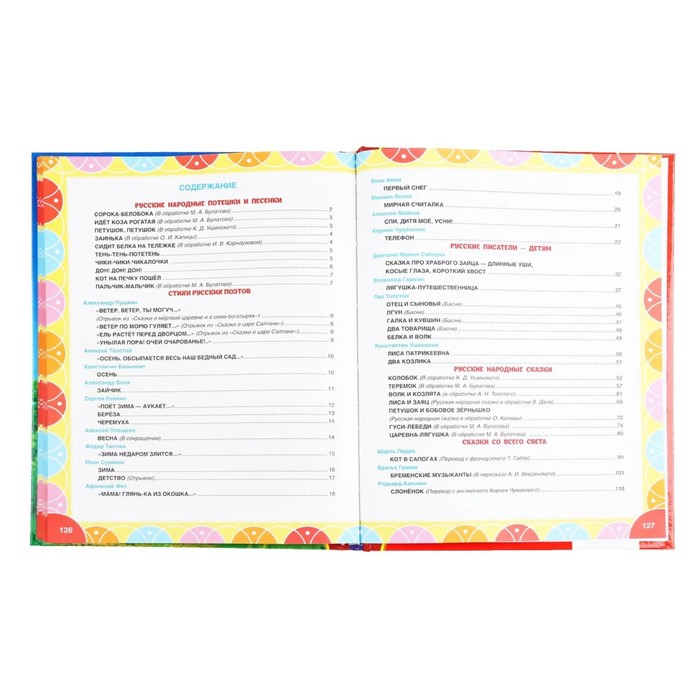 СОДЕРЖАНИЕ
РУССКИЕ НАРОДНЫЕ ПОТЕШКИ И ПЕСЕНКИ
СОРОКА-БЕЛОБОКА (В обработке М. А. Булатова) 2
ИДЁТ КОЗА РОГАТАЯ (В обработке М. А. Булатова) 3
ПЕТУШОК, ПЕТУШОК (В обработке К. Д. Ушинского) 3
ЗАИНЬКА (В обработке О. И. Капицы) 4
СИДИТ БЕЛКА НА ТЕЛЕЖКЕ (В обработке И. В. Карнауховой) 4
ТЕНЬ-ТЕНЬ-ПОТЕТЕНЬ
ЧИКИ-ЧИКИ-ЧИКАЛОЧКИ
ДОН! ДОН! ДОН!
КОТ НА ПЕЧКУ ПОШЁЛ
ПАЛЬЧИК-МАЛЬЧИК (В обработке М. А. Булатова) 7
СТИХИ РУССКИХ ПОЭТОВ
Александр Пушкин
«ВЕТЕР, ВЕТЕР, ТЫ МОГУЧ...»
(Отрывок из «Сказки о мёртвой царевне и о семи богатырях») 8
«ВЕТЕР ПО МОРЮ ГУЛЯЕТ...» (Отрывок из «Сказки о царе Салтане») 8
«ЕЛЬ РАСТЁТ ПЕРЕД ДВОРЦОМ...» (Отрывок из «Сказки о царе Салтане») 9
«УНЫЛАЯ ПОРА! ОЧЕЙ ОЧАРОВАНЬЕ!..» 9
Алексей Толстой
«ОСЕНЬ. ОБСЫПАЕТСЯ ВЕСЬ НАШ БЕДНЫЙ САД...» 10
Константин Бальмонт
ОСЕНЬ 10
Александр Блок
ЗАЙЧИК 11
Сергей Есенин
«ПОЁТ ЗИМА — АУКАЕТ...» 12
БЕРЁЗА 13
ЧЕРЕМУХА
Алексей Плещеев
ВЕСНА (В сокращении)
Фёдор Тютчев
«ЗИМА НЕДАРОМ ЗЛИТСЯ...» 15
Иван Суриков
ЗИМА 16
ДЕТСТВО (Отрывок) 17
Афанасий Фет
«МАМА! ГЛЯНЬ-КА ИЗ ОКОШКА...» 18
126
Яков Аким
ПЕРВЫЙ СНЕГ 19
Михаил Яснов
МИРНАЯ СЧИТАЛКА 20
Аполлон Майков
СПИ, ДИТЯ МОЁ, УСНИ!
Корней Чуковский
ТЕЛЕФОН
РУССКИЕ ПИСАТЕЛИ — ДЕТЯМ
Дмитрий Мамин-Сибиряк
СКАЗКА ПРО ХРАБРОГО ЗАЙЦА — ДЛИННЫЕ УШИ,
КОСЫЕ ГЛАЗА, КОРОТКИЙ ХВОСТ 32
Всеволод Гаршин
ЛЯГУШКА-ПУТЕШЕСТВЕННИЦА 37
Лев Толстой
ОТЕЦ И СЫНОВЬЯ (Басня) 45
ЛГУН (Басня)
ГАЛКА И КУВШИН (Басня) 47
ДВА ТОВАРИЩА (Басня)
БЕЛКА И ВОЛК
Константин Ушинский
ЛИСА ПАТРИКЕЕВНА 50
ДВА КОЗЛИКА 51
РУССКИЕ НАРОДНЫЕ СКАЗКИ
КОЛОБОК (В обработке К. Д. Ушинского) 52
ТЕРЕМОК (В обработке М. А. Булатова) 57
ВОЛК И КОЗЛЯТА (В обработке А. Н. Толстого) 61
ЛИСА И ЗАЯЦ (Русская народная сказка в обработке В. Даля)
ПЕТУШОК И БОБОВОЕ ЗЁРНЫШКО
(Русская народная сказка в обработке О. Капицы) 72
ГУСИ-ЛЕБЕДИ (В обработке М. А. Булатова) 74
ЦАРЕВНА-ЛЯГУШКА (В обработке М. А. Булатова) 80
СКАЗКИ СО ВСЕГО СВЕТА
Шарль Перро
КОТ В САПОГАХ (Перевод с французского Т. Габбе) 94
Братья Гримм
БРЕМЕНСКИЕ МУЗЫКАНТЫ (В пересказе А. И. Введенского) 103
Редьярд Киплинг
СЛОНЁНОК (Перевод с английского Корнея Чуковского) 110
127